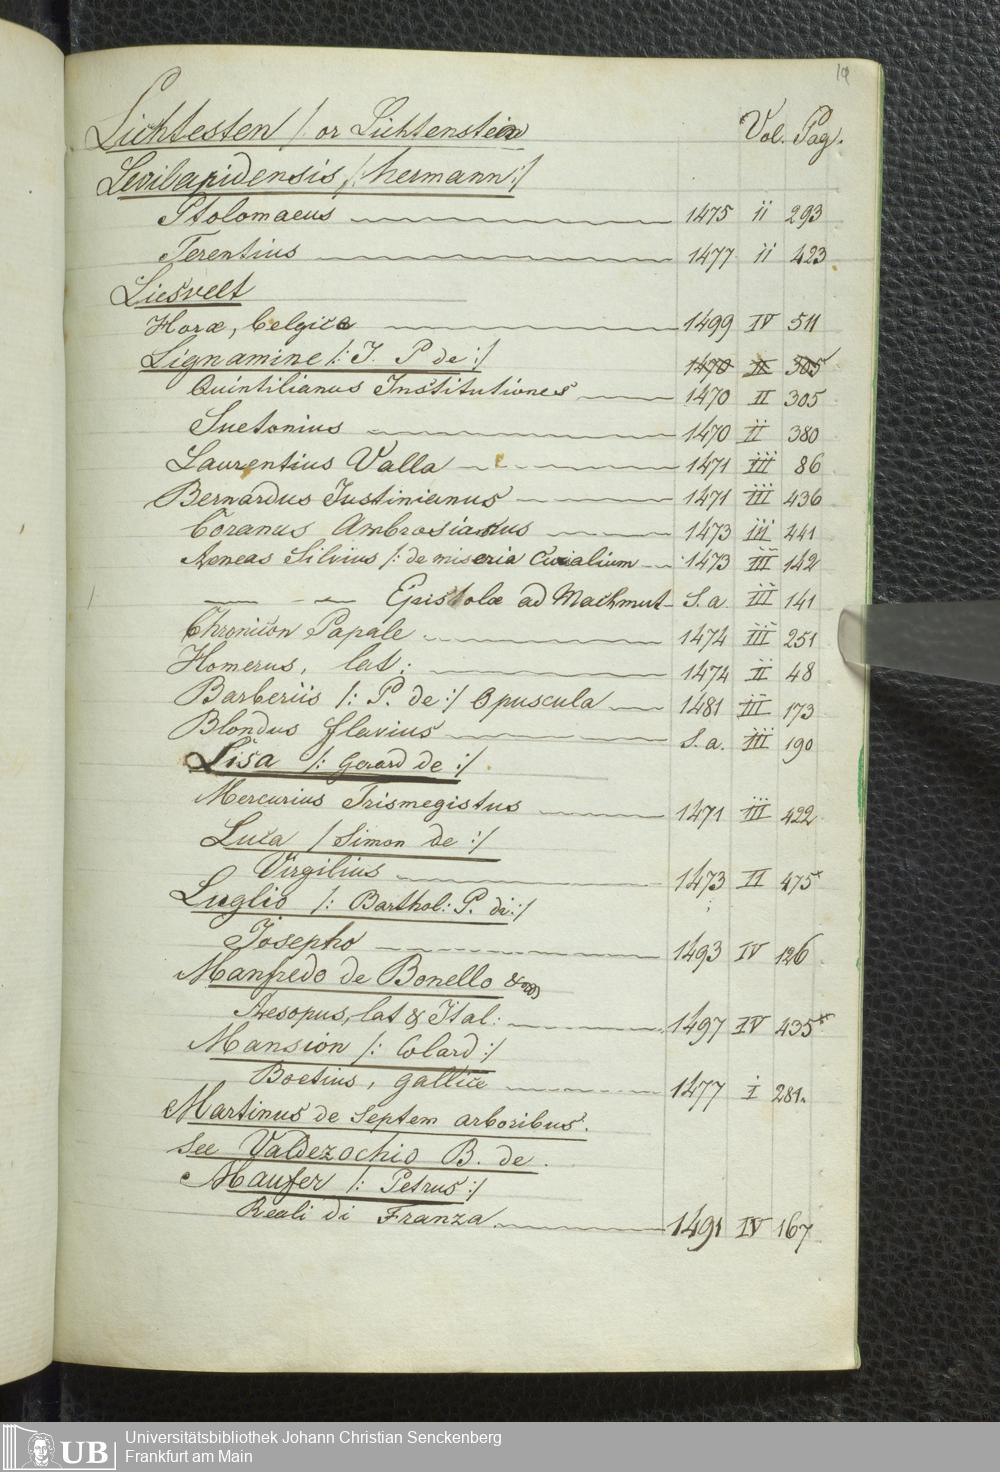 19
Lichtesten /: or Lichtenstein Vol. Pag.
Levilapidensis, /: hermann :/
Ptolomaeus 1475 ii 293
Terentius 1477 ii 423
Liesvelt
Horæ, belgice 1499 IV 511
Lignamine /: J. P de :/ 1470 II 305
Quintilianus Institutiones 1470 II 305
Suetonius 1470 ii 380
Laurentius Valla 1471 iii 86
Bernardus Justinianus 1471 iii 436
Coranus Ambrosianus 1473 iii 441
Aeneas Silvius /: de miseria Curialium 1473 III 142
Epistolæ ad Machmut S. a. III 141
Chronicon Papale 1474 III 251
Homerus, lat: 1474 ii 48
Barberiis /: P. de :/ Opuscula 1481 III 173
Blondus flavius S. a. iii 190
Lisa /: Gerard de :/
Mercurius Trismegistus 1471 III 422
Luca / Simon de :/
Virgilius 1473 II 475*
Luglio /: Barthol: P. di :/
Josepho 1493 IV 126
Manfredo de Bonello
Aesopus, lat & Ital: 1497 IV 435**
Mansion /: Colard :/
Boetius, gallice 1477 i 281.
Martinus de Septem arboribus.
see Valdezochio B. de.
Maufer /: Petrus :/
Reali di Franza 1491 IV 167
UB Universitätsbibliothek Johann Christian Senckenberg
Frankfurt am Main